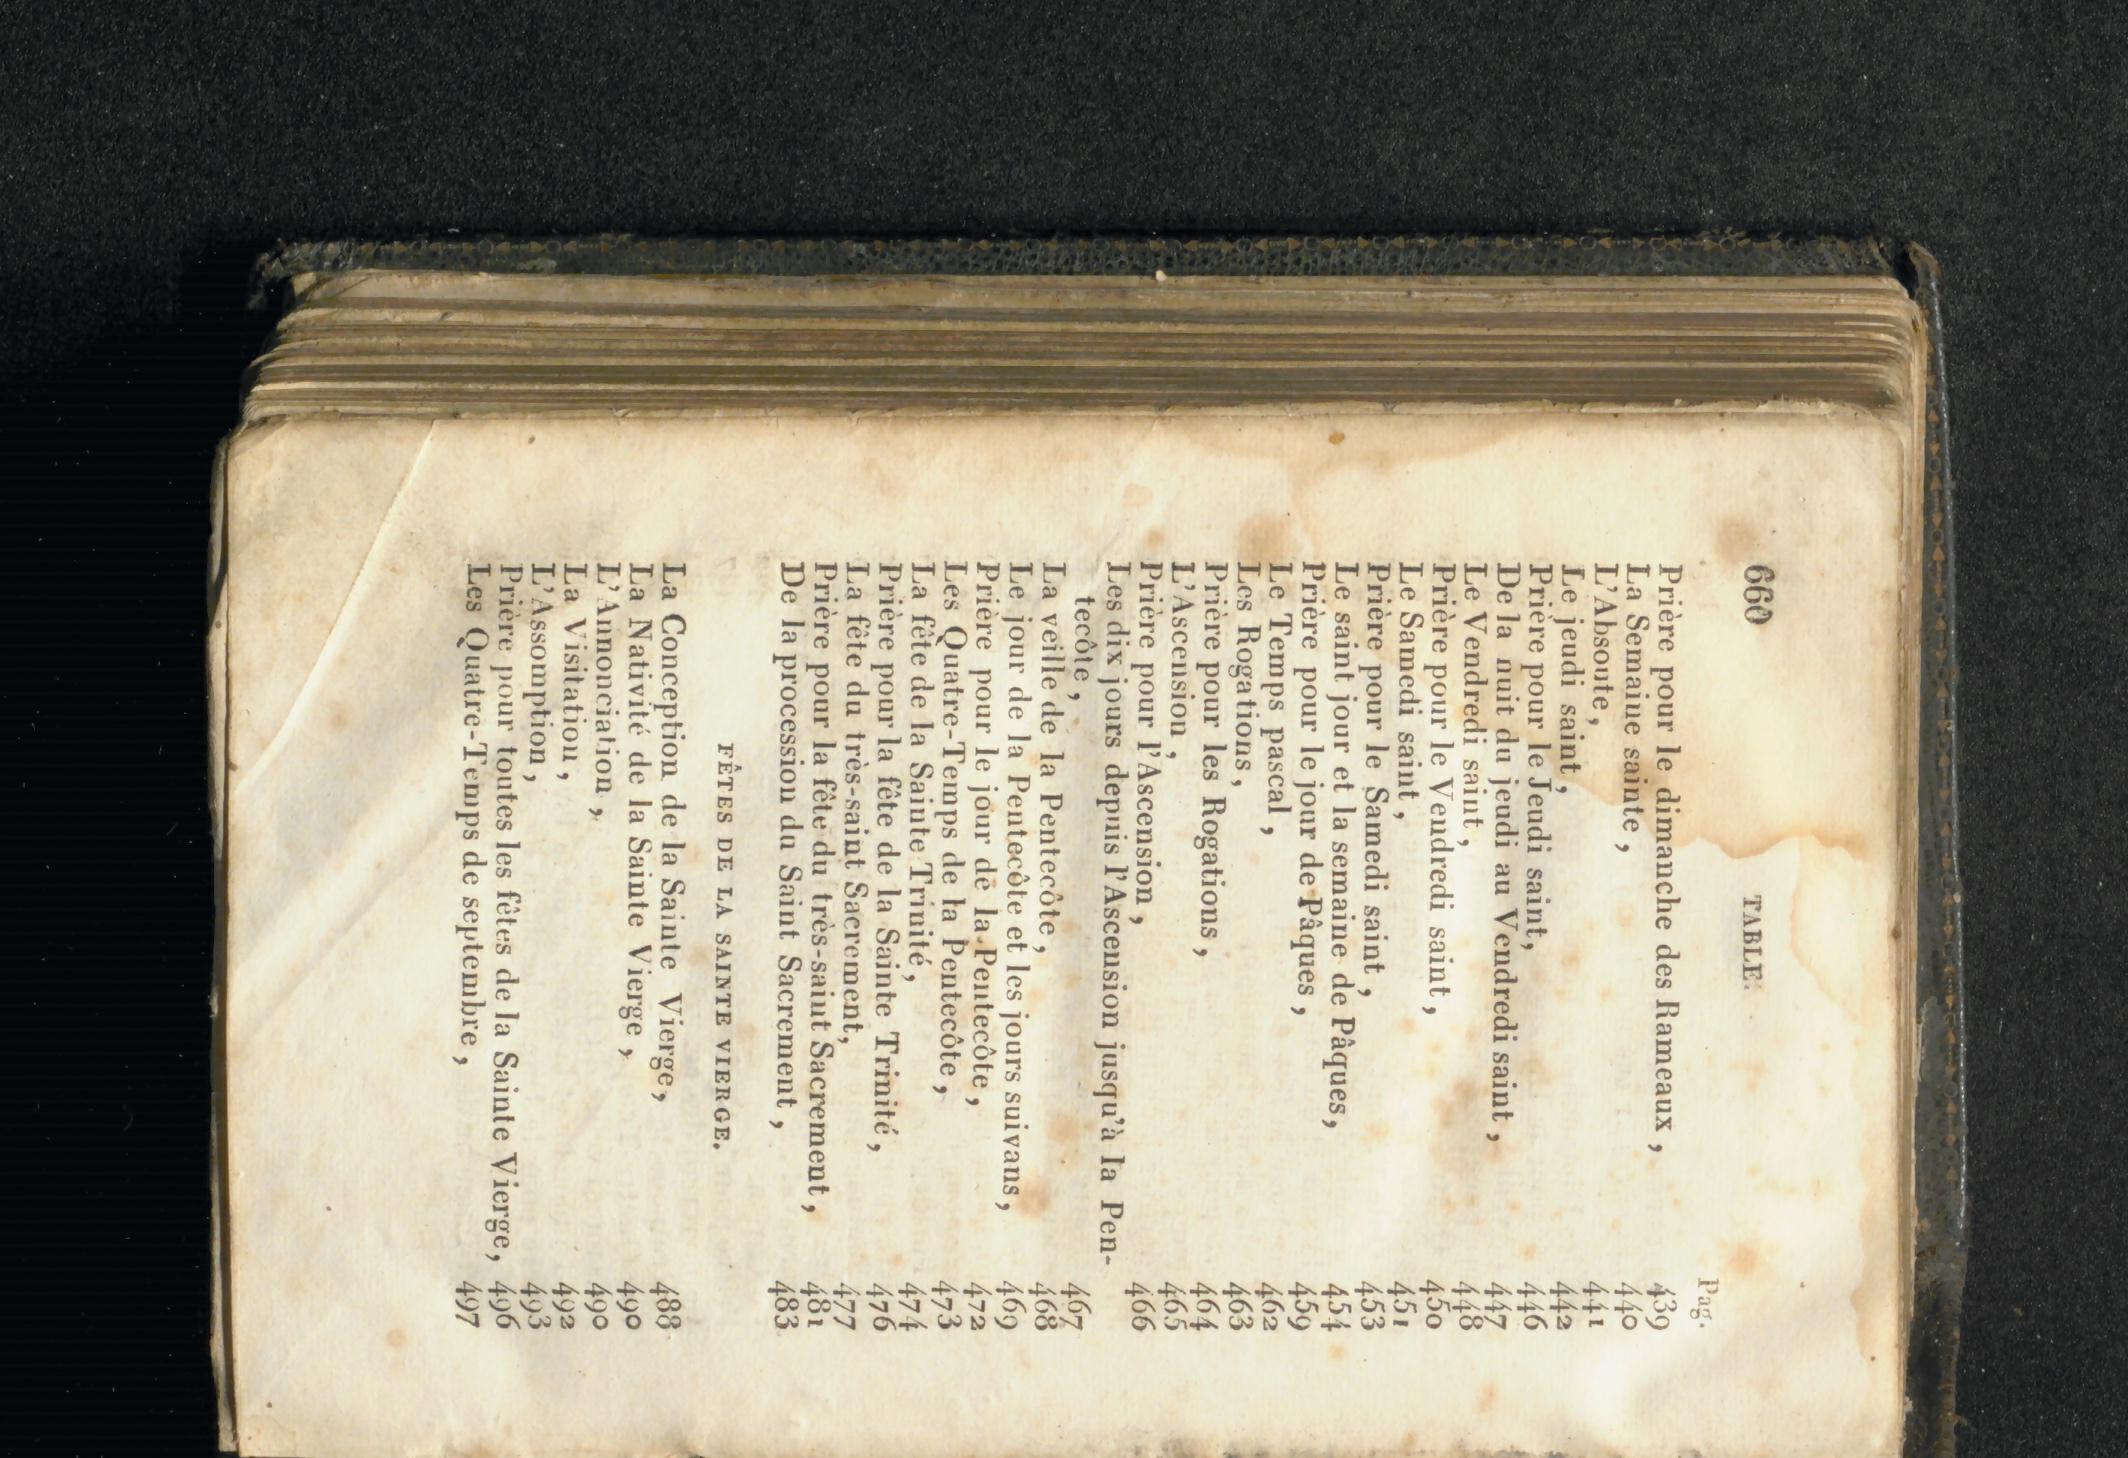 660 TABLE.
Pag.
Prière pour le dimanche des Rameaux, 439
La Semaine sainte, 440
L'Absoute, 441
Le jeudi saint, 442
Prière pour le Jeudi saint, 446
De la nuit du jeudi au Vendredi saint, 447
Le Vendredi saint, 448
Prière pour le Vendredi saint, 450
Le Samedi saint, 451
Prière pour le Samedi saint, 453
Le saint jour et la semaine de Pâques, 454
Prière pour le jour de Pâques, 459
Le Temps pascal, 462
Les Rogations, 463
Prière pour les Rogations, 464
L'Ascension, 465
Prière pour l'Ascension, 466
Les dix jours depuis l'Ascension jusqu'à la Pen-
tecôte, 467
La veille de la Pentecôte, 468
Le jour de la Pentecôte et les jours suivans, 469
Prière pour le jour de la Pentecôte, 472
Les Quatre-Temps de la Pentecôte, 473
La fête de la Sainte Trinité, 474
Prière pour la fête de la Sainte Trinité, 476
La fête du très-saint Sacrement, 477
Prière pour la fête du très-saint Sacrement, 481
De la procession du Saint Sacrement, 483
FÊTES DE LA SAINTE VIERGE.
La Conception de la Sainte Vierge, 488
La Nativité de la Sainte Vierge, 490
L'Annonciation, 490
La Visitation, 492
L'Assomption, 493
Prière pour toutes les fêtes de la Sainte Vierge, 496
Les Quatre-Temps de septembre, 497